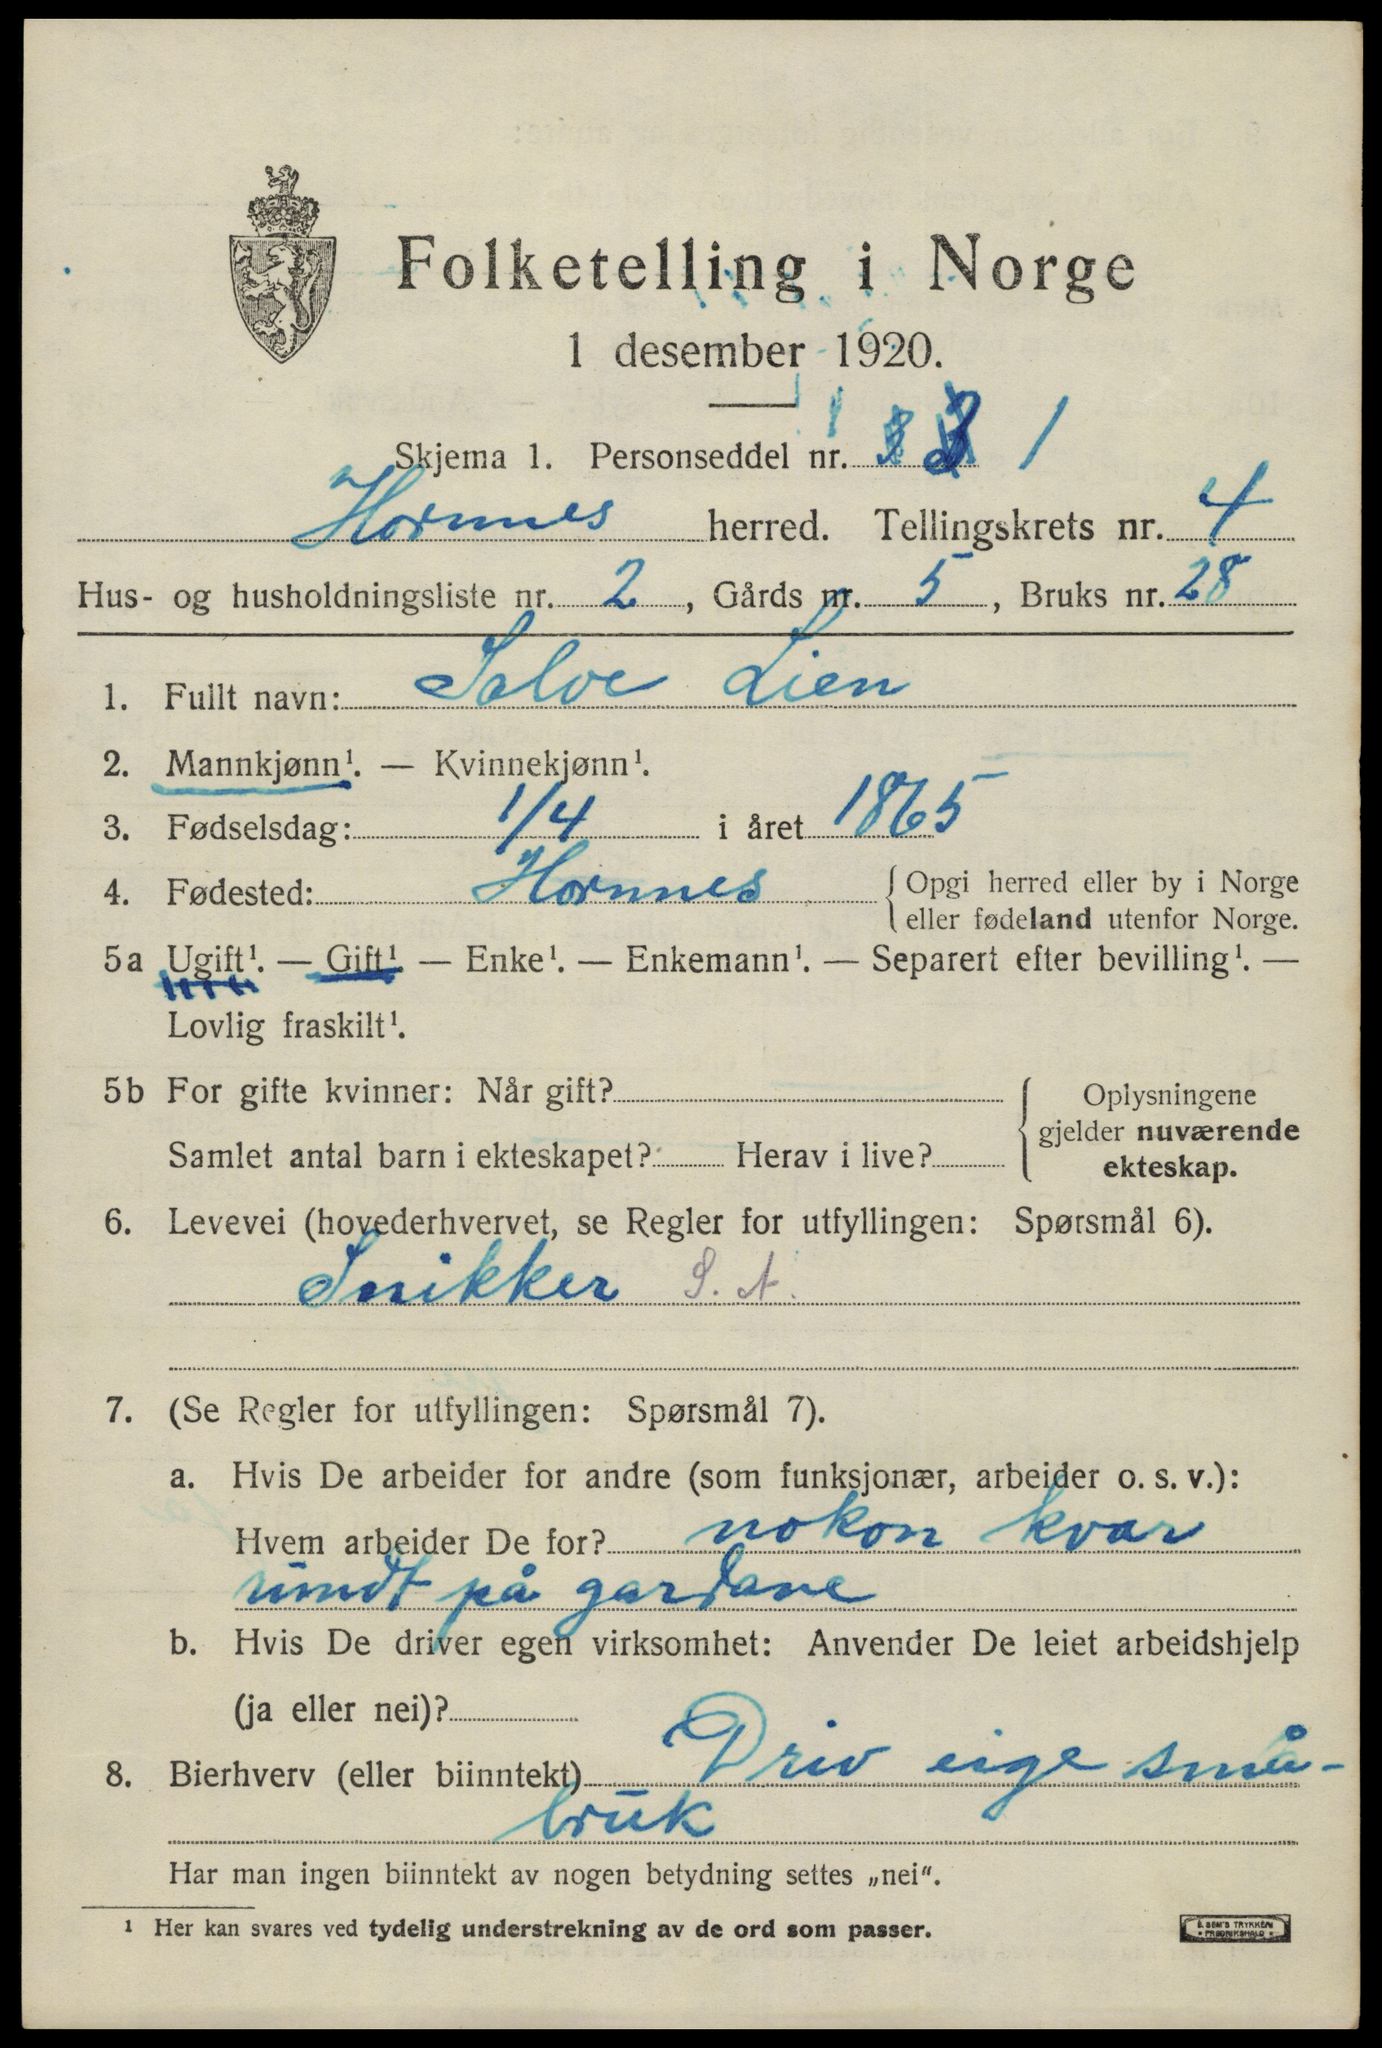 Folketelling i Norge
1 desember 1920.
Skjema 1. Personseddel nr. 1
Hornnes herred. Tellingskrets nr. 4
Hus- og husholdningsliste nr. 2, Gårds nr. 5, Bruks nr. 28
1. Fullt navn: Salve Lien
2. Mannkjønn¹. — Kvinnekjønn¹.
3. Fødselsdag: 1/4 i året 1865
4. Fødested: Hornnes { Opgi herred eller by i Norge
eller fødeland utenfor Norge.
5a Ugift¹. — Gift¹ — Enke¹. — Enkemann¹. — Separert efter bevilling¹. —
Lovlig fraskilt¹.
5b For gifte kvinner: Når gift?
Samlet antal barn i ekteskapet? Herav i live?
Oplysningene
gjelder nuværende
ekteskap.
6. Levevei (hovederhvervet, se Regler for utfyllingen: Spørsmål 6).
Snikker S. A.
7. (Se Regler for utfyllingen: Spørsmål 7).
a. Hvis De arbeider for andre (som funksjonær, arbeider o. s. v.):
Hvem arbeider De for? nokon kvar
rundt på gardane
b. Hvis De driver egen virksomhet: Anvender De leiet arbeidshjelp
(ja eller nei)?
8. Bierhverv (eller biinntekt) Driv eige små-
bruk
Har man ingen biinntekt av nogen betydning settes „nei“.
¹ Her kan svares ved tydelig understrekning av de ord som passer.
E. SEM'S TRYKKERI
* FREDRIKSHALD *